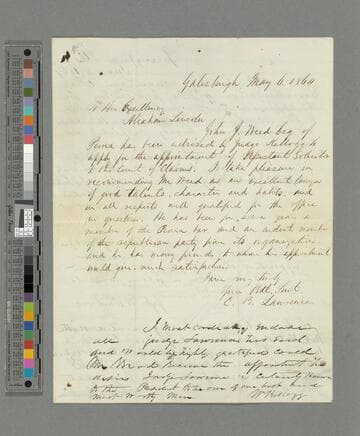 Galesburgh May 6. 1864
To His Excellency
Abraham Lincoln
John J. Weed Esq of
Peoria has been advised by Judge Kellogg to
apply for the appointment of Assistant Solicitor
to the Court of Claims. I take pleasure in
recommending Mr Weed as an excellent lawyer
of good talents, character and habits, and
in all respects well qualified for the office
in question. He has been for some years a
member of the Peoria bar and an ardent member
of the republican party from its organization
and he has many friends to whom his appointment
would give much satisfaction.
I am very truly
Your Obt. Svt
C. B. Lawrence
I most cordially endorse
all Judge Lawrence has said
and would be highly gratified could
Mr Weed receive the appointment he
desires Judge Lawrence is certainly known
to the President to be one of our best and
most worthy men
W Kellogg